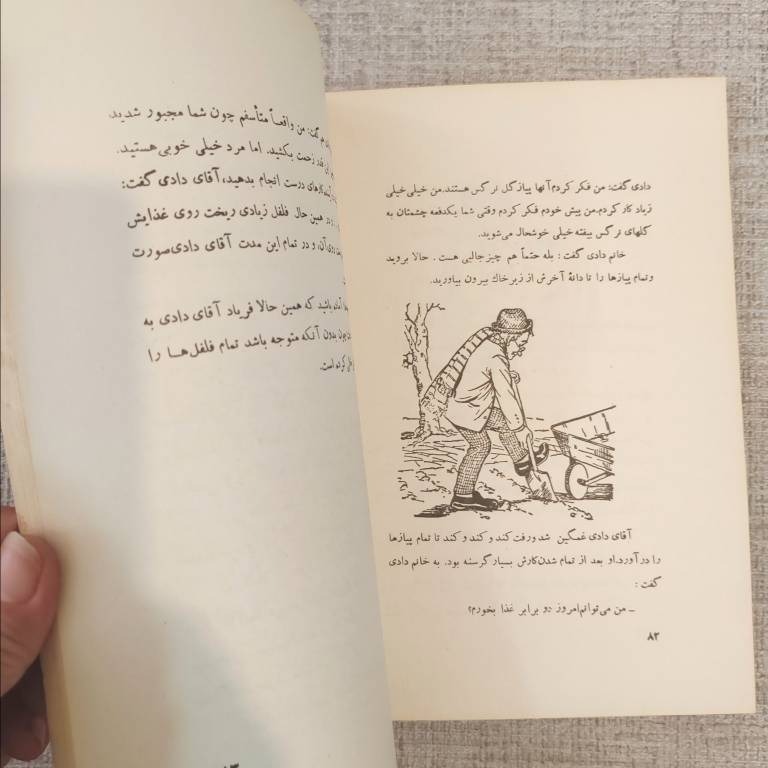 دادی گفت: من فکر کردم آنها پیاز گل نرگس هستند.من خیلی خیلی
زیاد کار کردم.من پیش خودم فکر کردم وقتی شما یکدفعه چشمتان به
گلهای نرگس بیفته خیلی خوشحال می‌شوید.
خانم دادی گفت : بله حتماً هم چیز جالبی هست . حالا بروید
وتمام پیازها را تا دانهٔ آخرش از زیر خاك بیرون بیاورید.
آقای دادی غمگین شد ورفت کند و کند و کند تا تمام پیازها
را درآورد.او بعد از تمام شدن‌کارش بسیار گرسنه بود. به خانم دادی
گفت :
ـ من می‌توانم‌امروز دو برابر غذا بخورم؟
۸۲
گفت: من واقعاً متأسفم چون شما مجبور شدید
قدر زحمت بکشید. اما مرد خیلی خوبی هستید.
کارهای درست انجام بدهید،آقای دادی گفت:
در همین حال فلفل زیادی ریخت روی غذایش
روی آن، و در تمام این مدت آقای دادی صورت
باشید که همین حالا فریاد آقای دادی به
بدون آنکه متوجه باشد تمام فلفل‌هـا را
کرده است.